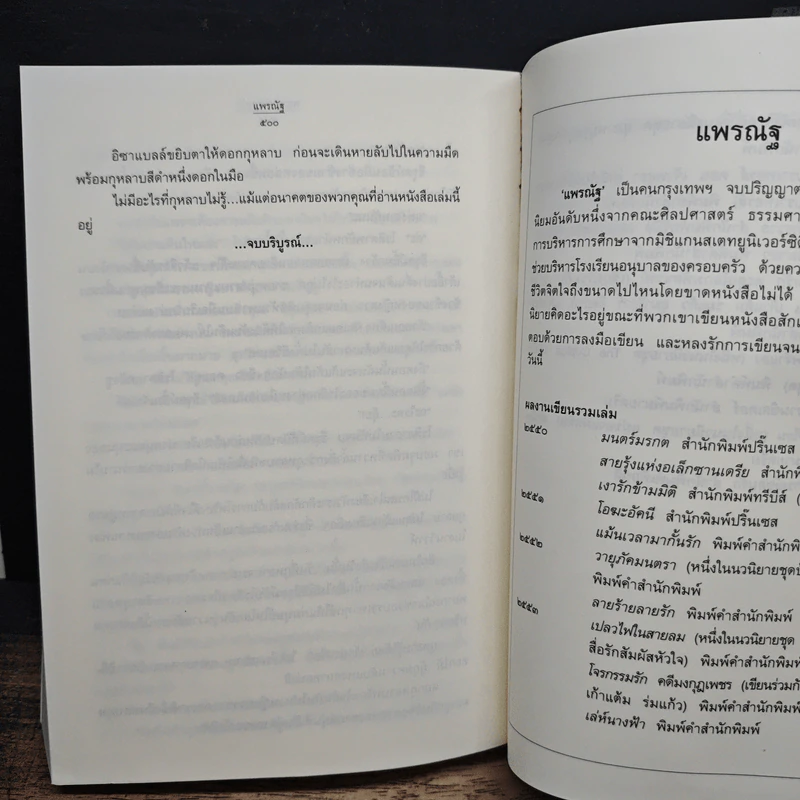 แพรณัฐ
๕๐๐
อิซาแบลล์ขยิบตาให้ดอกกุหลาบ ก่อนจะเดินหายลับไปในความมืด
พร้อมกุหลาบสีดำหนึ่งดอกในมือ
ไม่มีอะไรที่กุหลาบไม่รู้...แม้แต่อนาคตของพวกคุณที่อ่านหนังสือเล่มนี้
อยู่
...จบบริบูรณ์...
แพรณัฐ
'แพรณัฐ' เป็นคนกรุงเทพฯ จบปริญญาต
นิยมอันดับหนึ่งจากคณะศิลปศาสตร์ ธรรมศา
การบริหารการศึกษาจากมิชิแกนสเตทยูนิเวอร์ซิตี
ช่วยบริหารโรงเรียนอนุบาลของครอบครัว ด้วยคว
ชีวิตจิตใจถึงขนาดไปไหนโดยขาดหนังสือไม่ได้
นิยายคิดอะไรอยู่ขณะที่พวกเขาเขียนหนังสือสักเ
ตอบด้วยการลงมือเขียน และหลงรักการเขียนจน
วันนี้
ผลงานเขียนรวมเล่ม
๒๕๕๐ มนตร์มรกต สำนักพิมพ์ปริ๊นเซส
สายรุ้งแห่งอเล็กซานเดรีย สำนักพิ
๒๕๕๑ เงารักข้ามมิติ สำนักพิมพ์ทรีบีส์ (
โอฆะอัคนี สำนักพิมพ์ปริ๊นเซส
๒๕๕๒ แม้นเวลามากั้นรัก พิมพ์คำสำนักพิ
วายุภัคมนตรา (หนึ่งในนวนิยายชุด
พิมพ์คำสำนักพิมพ์
๒๕๕๓ ลายร้ายลายรัก พิมพ์คำสำนักพิมพ์
เปลวไฟในสายลม (หนึ่งในนวนิยายชุด
สื่อรักสัมผัสหัวใจ) พิมพ์คำสำนักพิมพ์
โจรกรรมรัก คดีมงกุฎเพชร (เขียนร่วมกั
เก้าแต้ม ร่มแก้ว) พิมพ์คำสำนักพิมพ์
เล่ห์นางฟ้า พิมพ์คำสำนักพิมพ์